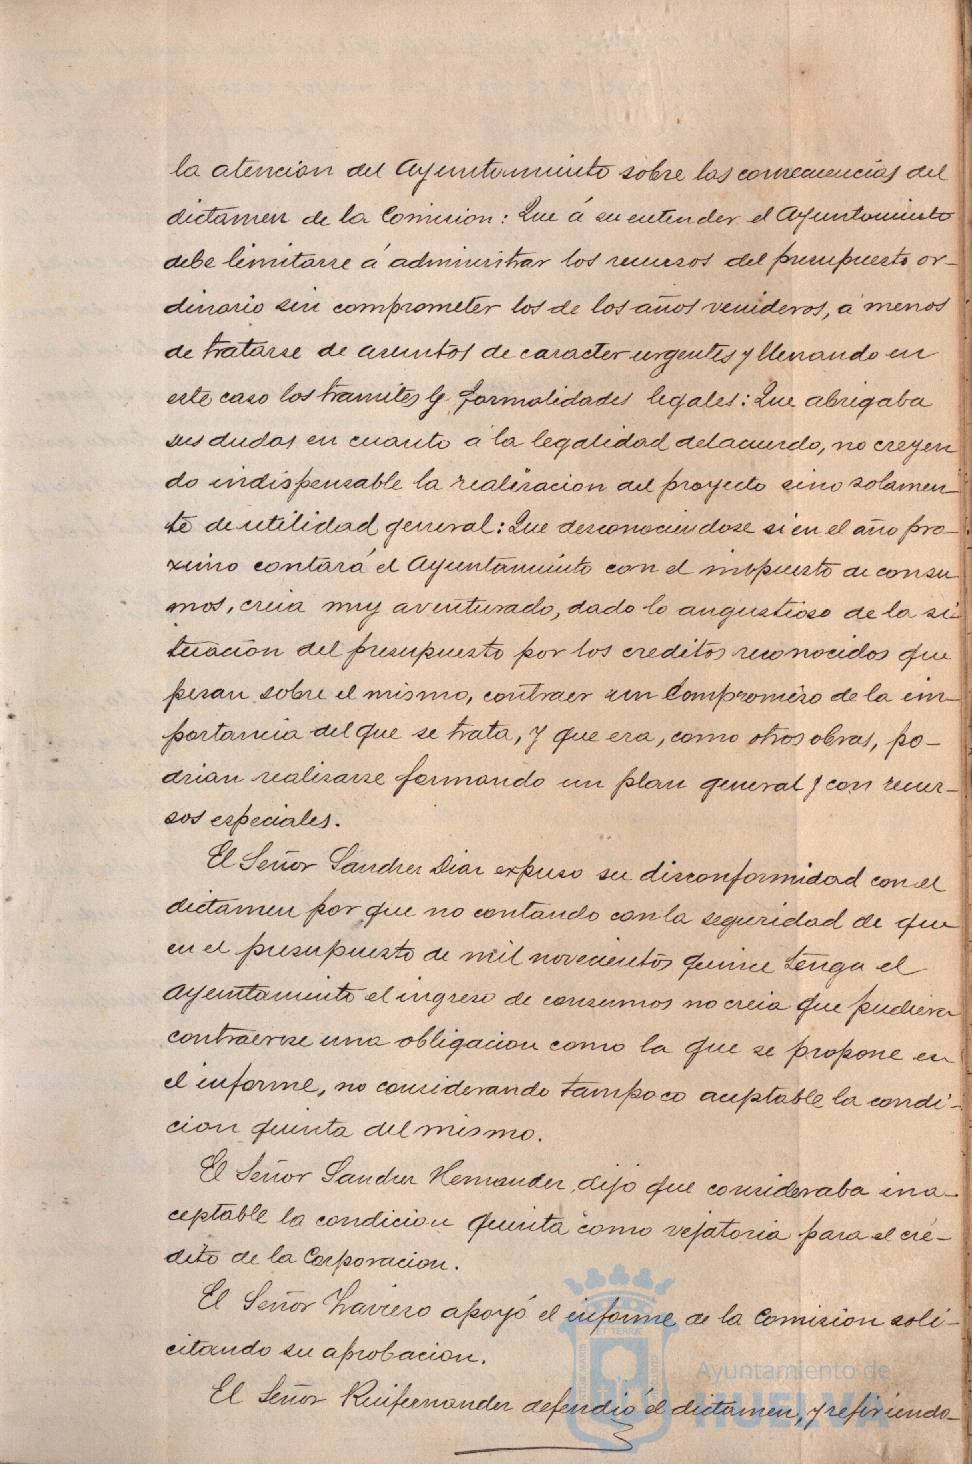 la atencion del Ayuntamiento sobre las consecuencias del
dictamen de la Comision: Que á su entender el Ayuntamiento
debe limitarse á administrar los recursos del presupuesto or-
dinario sin comprometer los de los años venideros, á menos
de tratarse de asuntos de caracter urgentes y llenando en
este caso los tramites y formalidades legales: Que abrigaba
sus dudas en cuanto á la legalidad del acuerdo, no creyen
do indispensable la realisacion del proyecto sino solamen-
te de utilidad general: Que desconociendose si en el año pro-
ximo contará el Ayuntamiento con el impuesto de consu
mos, creia muy aventurado, dado lo angustioso de la si-
tuación del presupuesto por los creditos reconocidos que
pesan sobre el mismo, contraer un Compromiso de la im-
portancia del que se trata, y que era, como otras obras, po-
drian realisarse formando un plan general y con recur-
sos especiales.
El Señor Sanchez Diaz expuso su disconformidad con el
dictamen por que no contando con la seguridad de que
en el presupuesto de mil novecientos quince tenga el
Ayuntamiento el ingreso de consumos no creia que pudiera
contraerse una obligacion como la que se propone en
el informe, no considerando tampoco aceptable la condi-
cion quinta del mismo.
El Señor Sanchez Hernandez, dijo que consideraba ina-
ceptable la condicion quinta como vejatoria para el cré-
dito de la Corporacion.
El Señor apoyó el informe de la Comision soli-
citando su aprobacion.
El Señor Ruifernandez defendió el dictamen, y refiriendo-
Ayuntamiento de
HUELVA